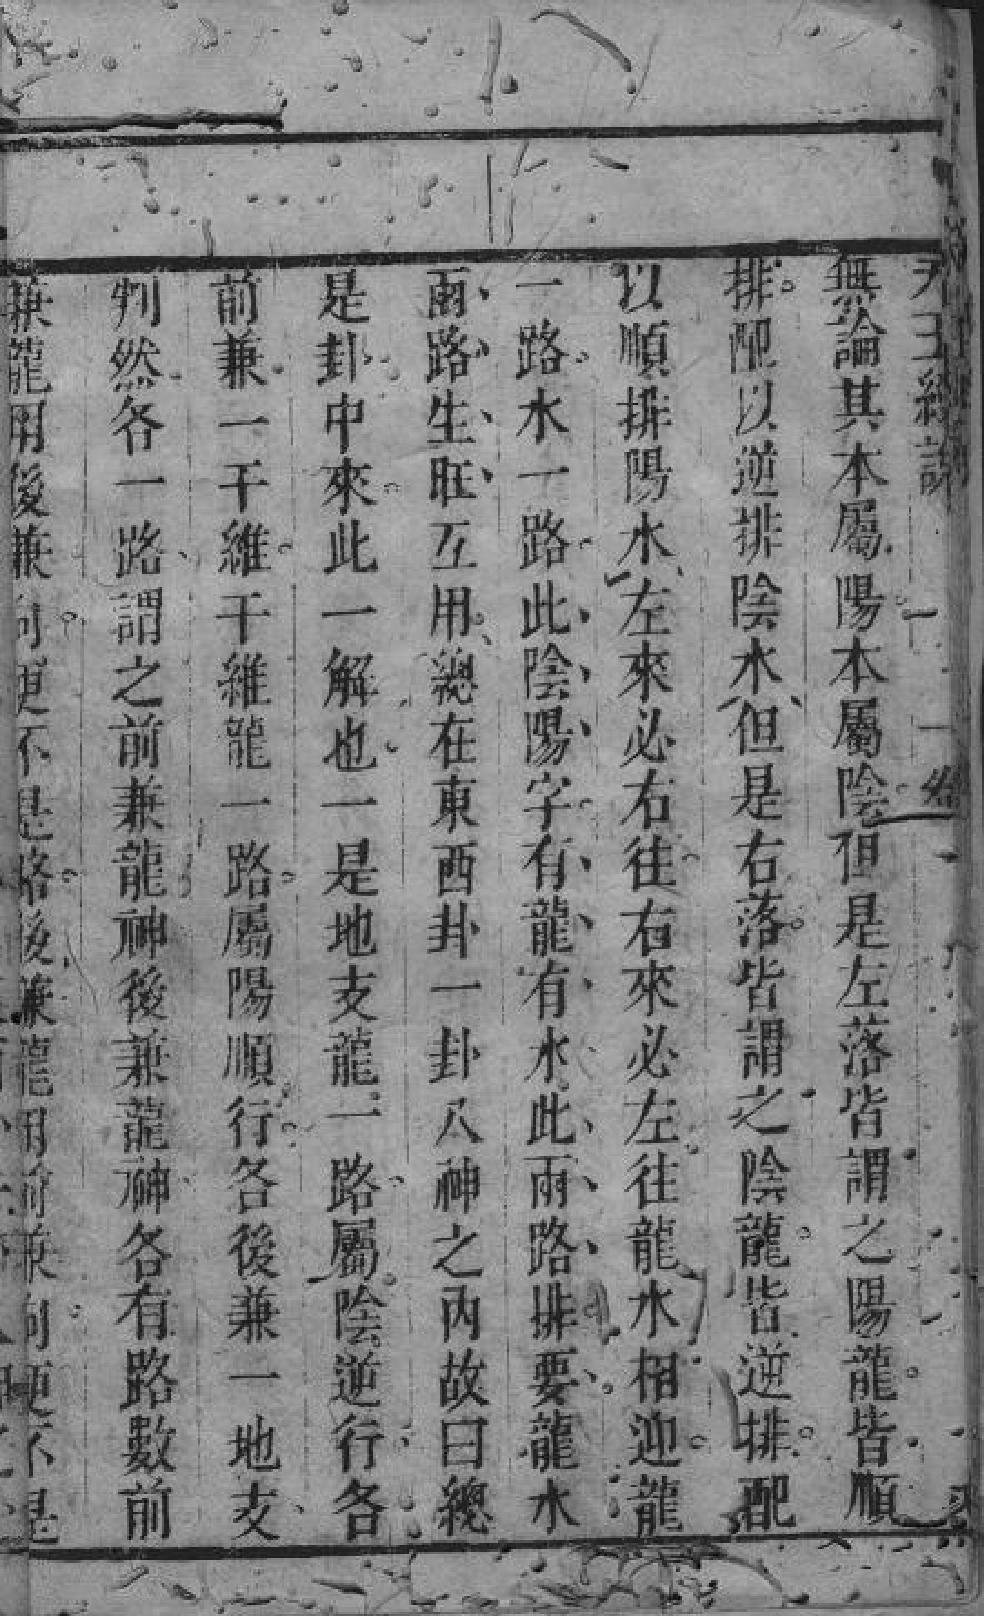 天玉經說
無論其本屬陽本屬陰但是左落皆謂之陽龍皆順
排配以逆排陰水但是右落皆謂之陰龍皆逆排配
以順排陽水左來必右往右來必左往龍水相迎龍
一路水一路此陰陽字有龍有水此兩路排要龍水
兩路生旺互用總在東西卦一卦八神之內故曰總
是卦中來此一解也一是地支龍一路屬陰逆行各
前兼一干維干維龍一路屬陽順行各後兼一地支
判然各一路謂之前兼龍神後兼龍神各有路數前
兼龍用後兼向便不是路後兼龍用前兼向便不是